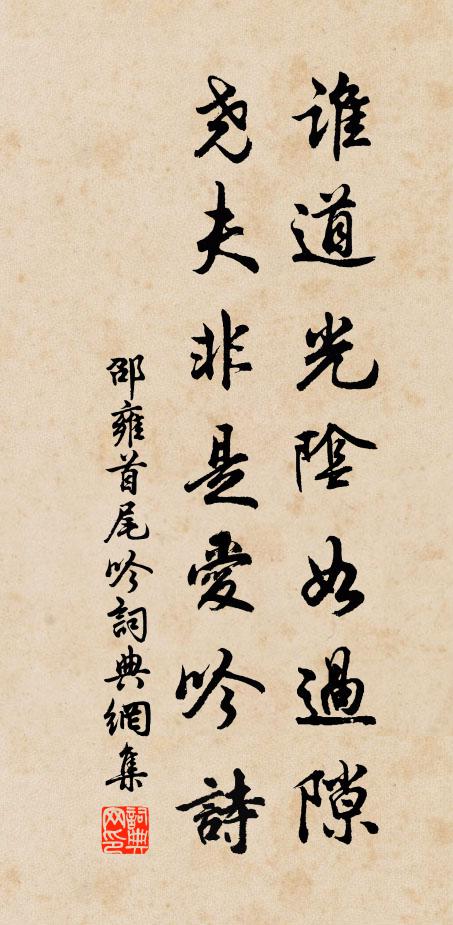 誰道光陰如過隙
堯夫非是愛吟詩
邵雍首尾吟詞典網集
詞典网印